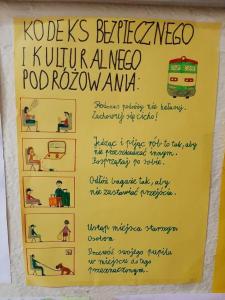 KODEKS BEZPIECZNEGO
I KULTURALNEGO
PODRÓŻOWANIA:
Podczas podróży nie hałasuj.
Zachowuj się cicho!
Jedząc i pijąc rób to tak, aby
nie przeszkadzać innym.
Posprzątaj po sobie.
Odłóż bagaże tak, aby
nie zastawiać przejścia.
Ustąp miejsca starszym
osobom.
Przewoź swojego pupila
w miejscu do tego
przeznaczonym.